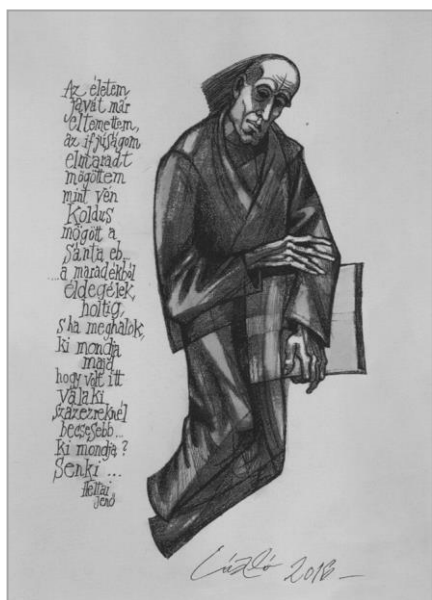 Az életem
javát már
eltemettem,
az ifjúságom
elmaradt
mögöttem
mint vén
koldus
mögött a
sánta eb...
...a maradékból
éldegélek,
holtig,
s ha meghalok,
ki mondja
majd
hogy volt itt
valaki
százezreknél
becsesebb...
ki mondja?
Senki ...
Heltai
Jenő
László 2018